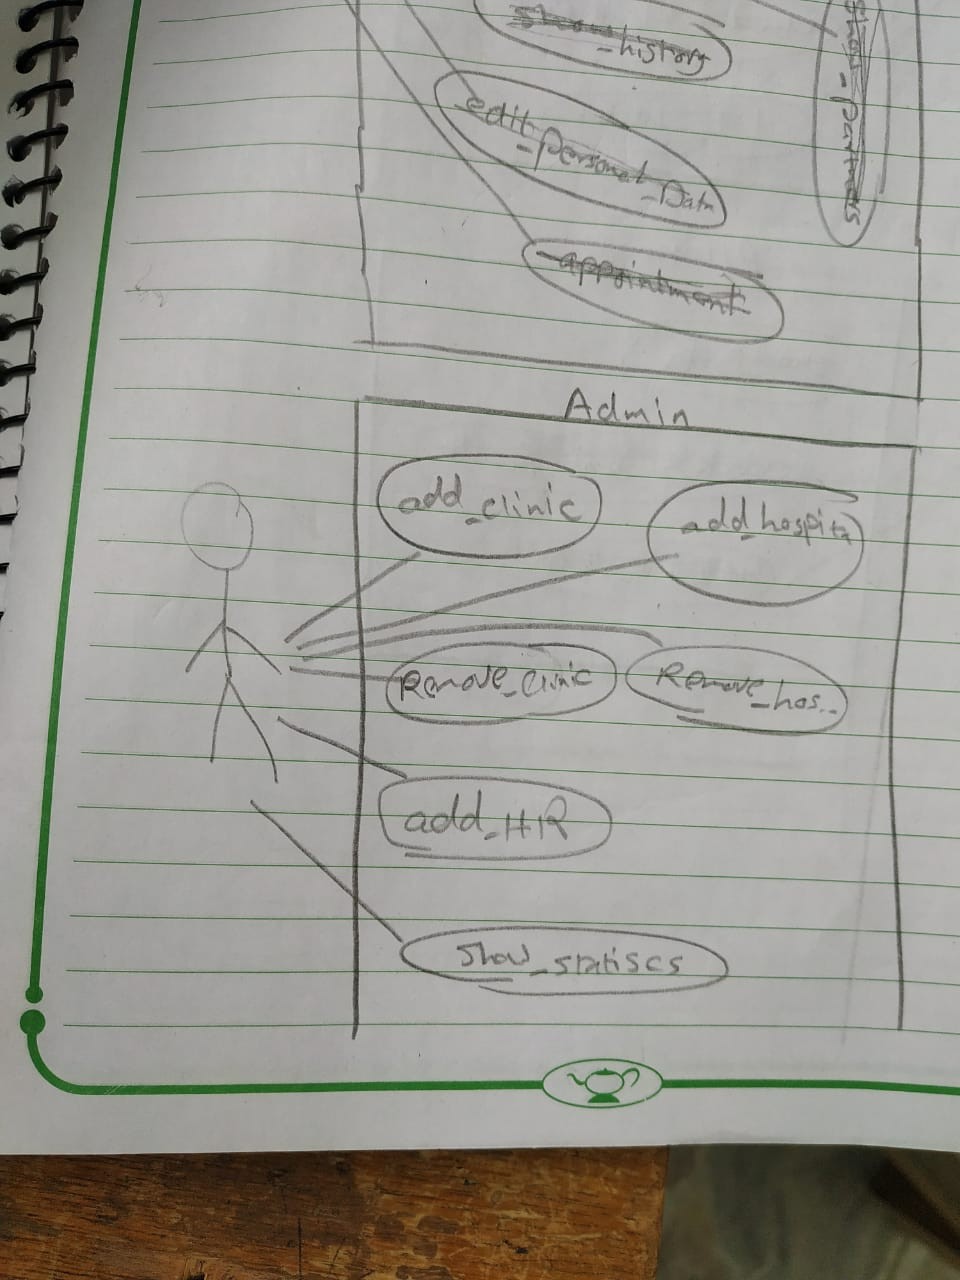 show_history
edit_personal_Data
appointment
Admin
add_clinic
add_hospita
Remove_clinic
Remove_hos..
add_HR
Show_statiscs